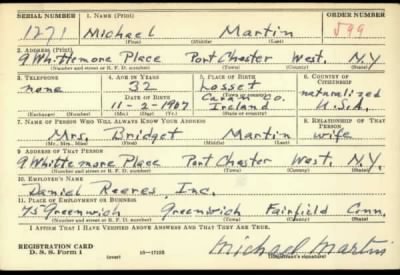 SERIAL NUMBER 1. NAME (Print) ORDER NUMBER
1271 Michael Martin 599
(First) (Middle) (Last)
2. ADDRESS (Print)
9 Whittemore Place Port Chester West. N.Y.
(Number and street or R. F. D. number) (Town) (County) (State)
3. TELEPHONE 4. AGE IN YEARS 5. PLACE OF BIRTH 6. COUNTRY OF CITIZENSHIP
none 32 Losset naturalized
DATE OF BIRTH (Town or county)
11-2-1907 Cavan Co. Ireland U.S.A.
(Exchange) (Number) (Mo.) (Day) (Yr.) (State or country)
7. NAME OF PERSON WHO WILL ALWAYS KNOW YOUR ADDRESS 8. RELATIONSHIP OF THAT PERSON
Mrs. Bridget Martin wife
(Mr., Mrs., Miss) (First) (Middle) (Last)
9. ADDRESS OF THAT PERSON
9 Whittemore Place Port Chester West. N.Y.
(Number and street or R. F. D. number) (Town) (County) (State)
10. EMPLOYER'S NAME
Daniel Reeves, Inc.
11. PLACE OF EMPLOYMENT OR BUSINESS
75 Greenwich Greenwich Fairfield Conn.
(Number and street or R. F. D. number) (Town) (County) (State)
I AFFIRM THAT I HAVE VERIFIED ABOVE ANSWERS AND THAT THEY ARE TRUE.
REGISTRATION CARD
D. S. S. Form 1 (over) 16-17105 Michael Martin
(Registrant's signature)